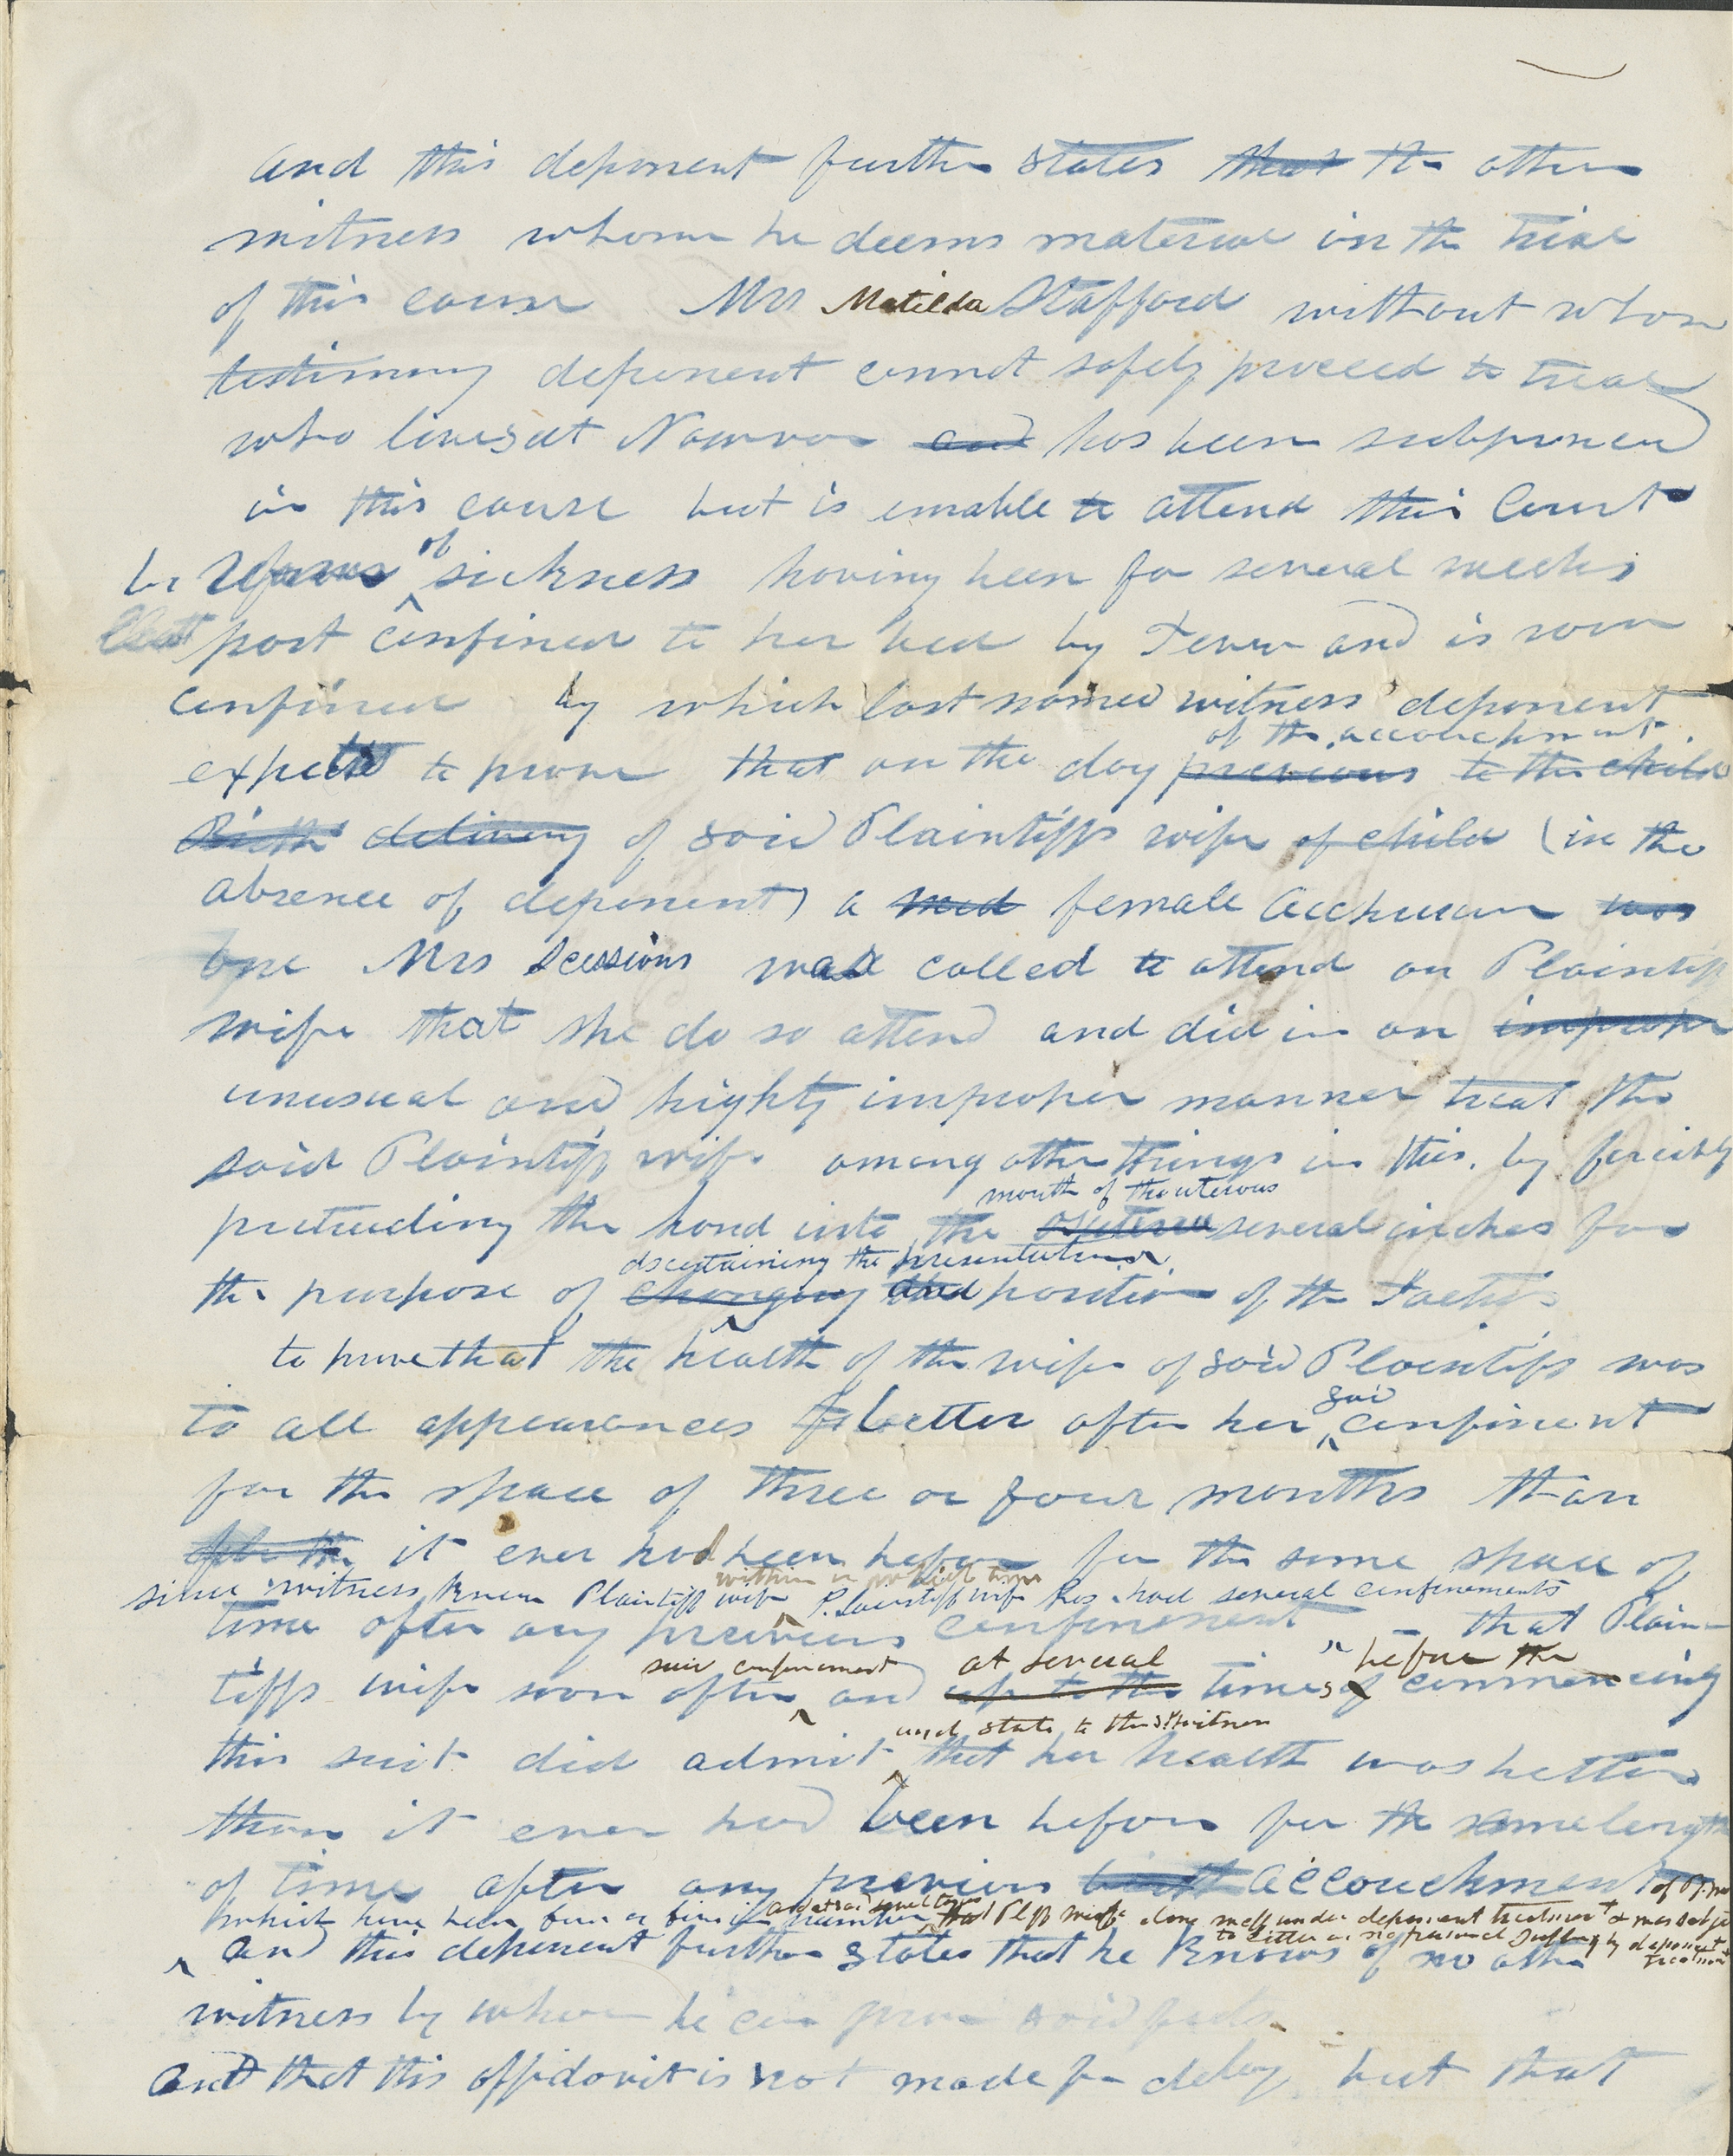 and this deponent further states that the other
witness whom he deems material in the trial
of this cause Mrs Matilda Stafford without whose
testimony deponent cannot safely proceed to trial
who lives at and has been subpoenaed
in this cause but is unable to attend this Court
by reason of sickness having been for several weeks
past confined to her bed by Fever and is now
confined by which last named witness deponent
of the accouchment
expects to prove that on the day previous to the child
Birth delivery of said Plaintiffs wife of child (in the
absence of deponent) a med female Accheuur was
one Mrs Scessions was called to attend on Plaintiff
wife that she do so attend and did in an improper
unusual and highly improper manner treat the
said Plaintiff wife among other things in this, by forcibly
mouth of the uterous
protruding the hand into the several inches for
ascertaining the presentation
the purpose of changing and position of the Faetus
to prove that the health of the wife of said Plaintiff was
said
to all appearances better after her confinent
for the space of three or four months than
after the it ever had been before for the same space of
within which time
since witness knew Plaintiff wife Plaintiff wife has had several confinements
time after any previous confinement that Plain-
said confinement at several before the
tiffs wife soon after and up to the times of commencing
and state to this Witness
this suit did admit that her health was better
than it ever had been before for the same length
of time after any previous birth accouchment of
which have been four or five in number that Plff wife done well under deponent treatment & was
to little or no personal suffering by deponent treatment
and this deponent further states that he knows of no other
witness by whom he can prove said facts
and that this affidavit is not made for delay but that